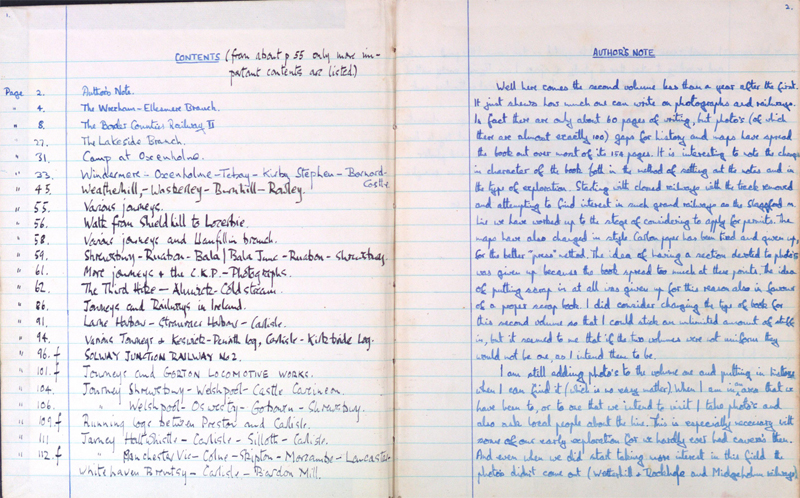 1.
CONTENTS (from about p 55 only more im-
portant contents are listed)
Page 2. Author's Note.
" 4. The Wrexham-Ellesmere Branch.
" 8. The Border Counties Railway II
" 27. The Lakeside Branch.
" 31. Camp at Oxenholme.
" 33. Windermere-Oxenholme-Tebay-Kirby Stephen-Barnard-
Castle
" 45. Weatherhill,-Waskerley-Burnhill-Rowley.
" 55. Various journeys.
" 56. Walk from Shieldhill to Lockerbie.
" 58. Various journeys and Llanfyllin branch.
" 59. Shrewsbury-Ruabon-Bala | Bala Junc-Ruabon-Shrewsbury.
" 61. More journeys & the C.K.P.-Photographs.
" 62. The Third Hike-Alnwick-Coldstream.
" 86. Journeys and Railways in Ireland.
" 91. Larne Harbour-Stranraer Harbour-Carlisle.
" 94. Various Journeys & Keswick-Penrith log, Carlisle-Kirkbride Log.
" 96.f SOLWAY JUNCTION RAILWAY No 2.
" 101.f Journeys and GORTON LOCOMOTIVE WORKS.
" 104. Journey Shrewsbury-Welshpool-Castle Caereinion.
" 106. " Welshpool-Oswestry-Gobowen-Shrewsbury.
" 109 f Running logs between Preston and Carlisle.
" 111 Journey Haltwhistle-Carlisle-Silloth-Carlisle.
" 112.f " Manchester Vic-Colne-Skipton-Morecambe-Lancaster
Whitehaven Bransty-Carlisle-Bardon Mill.
2.
AUTHOR'S NOTE
Well here comes the second volume less than a year after the first.
It just shows how much one can write on photographs and railways.
In fact there are only about 60 pages of writing, but photo's (of which
there are almost exactly 100) gaps for history and maps have spread
the book out over most of its 152 pages. It is interesting to note the change
in character of the book both in the method of setting out the notes and in
the type of exploration. Starting with closed railways with the track removed
and attempting to find interest in such grand railways as the Slaggyford
line we have worked up to the stage of considering to apply for permits. The
maps have also changed in style. Carbon paper has been tried and given up,
for the better "press" method. The idea of having a section devoted to photo's
was given up because the book spread too much at these points. The idea
of putting scrap in at all was given up for this reason also in favour
of a proper scrap book. I did consider changing the type of book for
this second volume so that I could stick an unlimited amount of stuff
in, but it seemed to me that if the two volumes were not uniform they
would not be one, as I intend them to be.
I am still adding photo's to the volume one and putting in history
when I can find it (which is no easy matter). When I am in an area that we
have been to, or to one that we intend to visit I take photo's and
also ask local people about the line. This is especially necessary with
some of our early exploration for we hardly ever had cameras then.
And even when we did start taking more interest in this field the
photo's didn't come out (Wetherhill & Rookhope and Midgeholm railways)